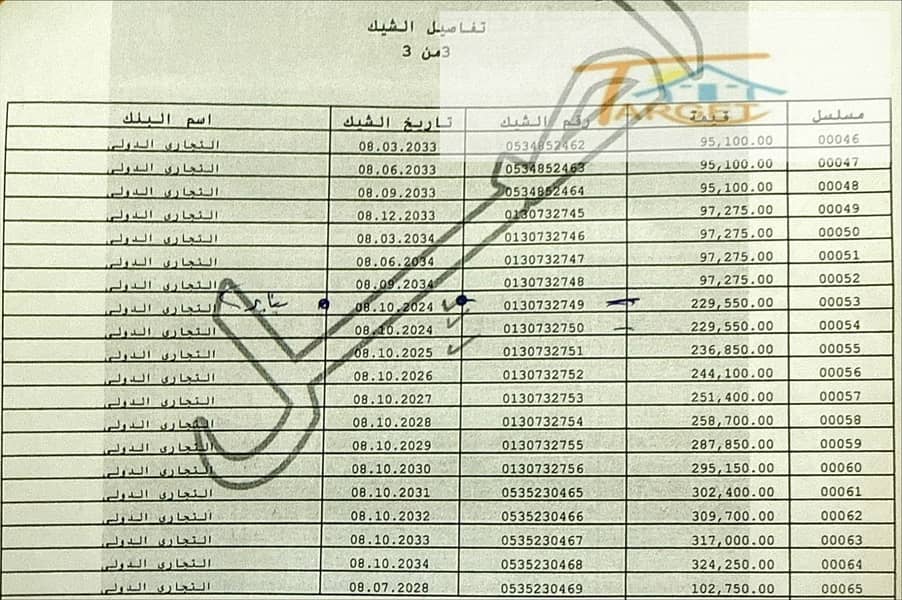 تفاصيل الشيك
3 من 3
TARGET
مسلسل قيمة رقم الشيك تاريخ الشيك اسم البنك
00046 95,100.00 0534852462 08.03.2033 التجارى الدولى
00047 95,100.00 0534852463 08.06.2033 التجارى الدولى
00048 95,100.00 0534852464 08.09.2033 التجارى الدولى
00049 97,275.00 0130732745 08.12.2033 التجارى الدولى
00050 97,275.00 0130732746 08.03.2034 التجارى الدولى
00051 97,275.00 0130732747 08.06.2034 التجارى الدولى
00052 97,275.00 0130732748 08.09.2034 التجارى الدولى
00053 229,550.00 0130732749 08.10.2024 التجارى الدولى
00054 229,550.00 0130732750 08.10.2024 التجارى الدولى
00055 236,850.00 0130732751 08.10.2025 التجارى الدولى
00056 244,100.00 0130732752 08.10.2026 التجارى الدولى
00057 251,400.00 0130732753 08.10.2027 التجارى الدولى
00058 258,700.00 0130732754 08.10.2028 التجارى الدولى
00059 287,850.00 0130732755 08.10.2029 التجارى الدولى
00060 295,150.00 0130732756 08.10.2030 التجارى الدولى
00061 302,400.00 0535230465 08.10.2031 التجارى الدولى
00062 309,700.00 0535230466 08.10.2032 التجارى الدولى
00063 317,000.00 0535230467 08.10.2033 التجارى الدولى
00064 324,250.00 0535230468 08.10.2034 التجارى الدولى
00065 102,750.00 0535230469 08.07.2028 التجارى الدولى